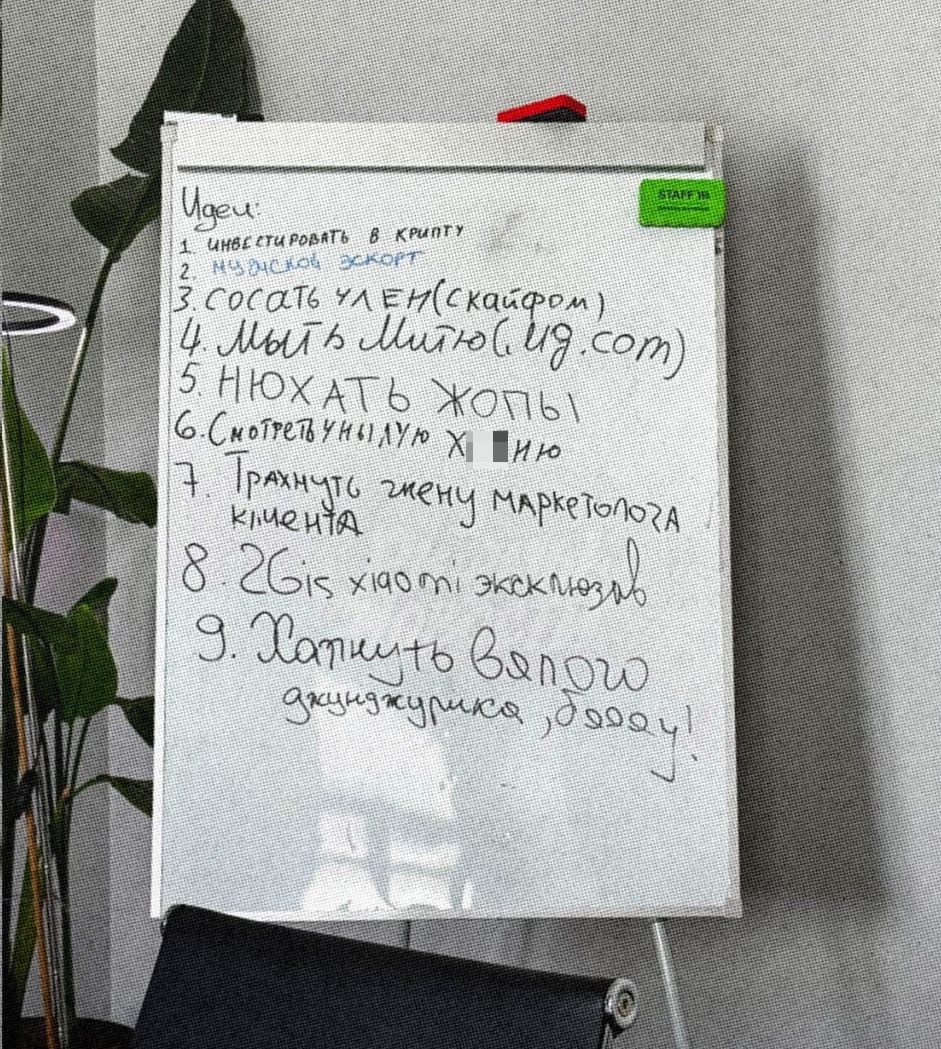 Идеи:
1 ИНВЕСТИРОВАТЬ В КРИПТУ
2. МУЖСКОЙ ЭСКОРТ
3. СОСАТЬ ЧЛЕН (СКАЙФОМ)
4. Мыть Митю(
5. НЮХАТЬ ЖОПЫ
6. СМОТРЕТЬ УНЫЛУЮ Х НЮ
7. ТРАХНУТЬ жену МАРКЕТОЛОГА
КЛИЕНТА
8. 2Gis xiaomi эксклюзив
9. Хапнуть вялого
джунджурика, бляяу!
STAFF